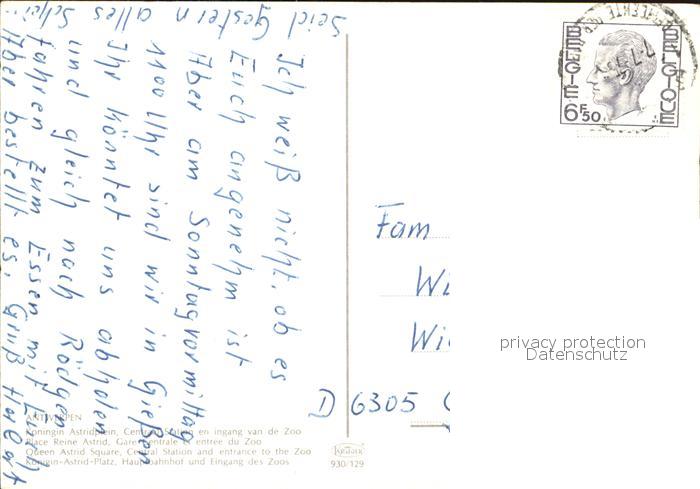 Seid gestern
Ich weiß nicht, ob es
Euch angenehm ist
Aber am Sonntagvormittag
1100 Uhr sind wir in Gießen
Ihr könntet uns abholen
alles
und gleich nach Rödgen
fahren zum Essen mit Euch
Aber bestellt es. Gruß
BELGIE
BELGIQUE
6F50
Fam
Wi
Wie
D 6305
privacy protection
Datenschutz
ANTWERPEN
Koningin Astridplein, Centraal Station en ingang van de Zoo
Place Reine Astrid, Gare Centrale et entrée du Zoo
Queen Astrid Square, Central Station and entrance to the Zoo
Königin-Astrid-Platz, Hauptbahnhof und Eingang des Zoos
930/129